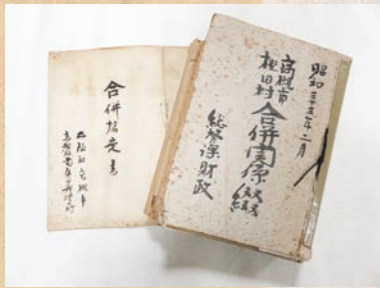 昭和三十三年二月
高槻市
樫田村
合併関係綴
総務課財政
合併協定書
大阪府高槻市